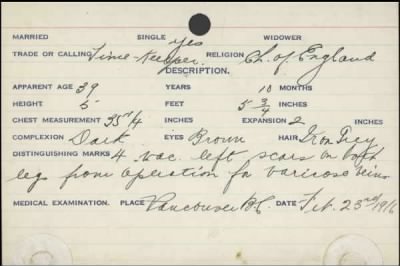 MARRIED SINGLE yes WIDOWER
TRADE OR CALLING Time-Keeper. RELIGION Ch. of England
DESCRIPTION.
APPARENT AGE 39 YEARS 10 MONTHS
HEIGHT 5 FEET 5 3/4 INCHES
CHEST MEASUREMENT 35 1/4 INCHES EXPANSION 2 INCHES
COMPLEXION Dark EYES Brown HAIR Iron Grey
DISTINGUISHING MARKS 4 vac. left scars on both
legs from operation for varicose veins
MEDICAL EXAMINATION. PLACE Vancouver B.C. DATE Feb. 23rd 1916